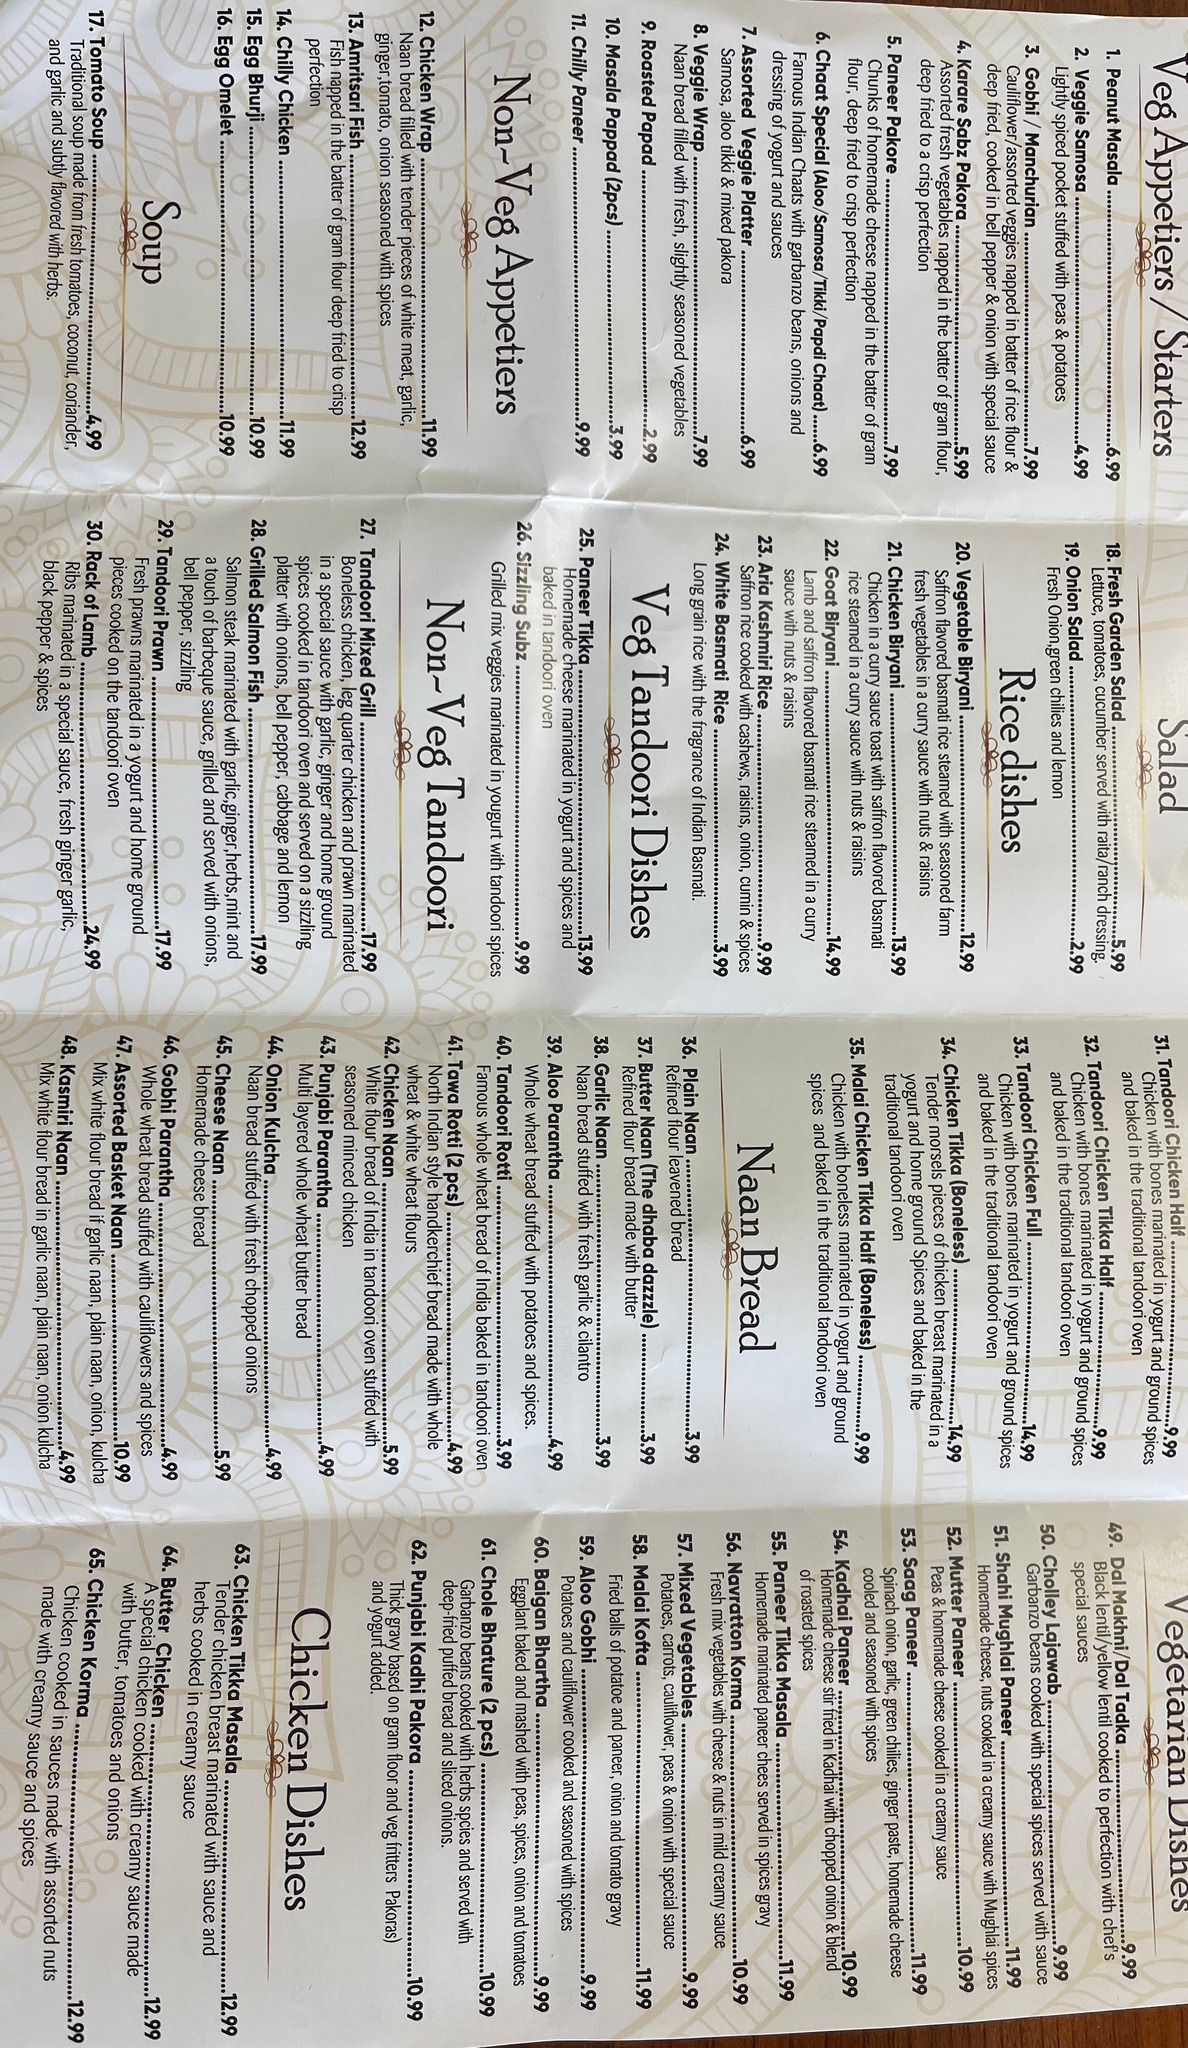 Veg Appetiers / Starters
1. Peanut Masala 6.99
2. Veggie Samosa 4.99
Lightly spiced pocket stuffed with peas & potatoes
3. Gobhi / Manchurian 7.99
Cauliflower/assorted veggies napped in batter of rice flour &
deep fried, cooked in bell pepper & onion with special sauce
4. Karare Sabz Pakora 5.99
Assorted fresh vegetables napped in the batter of gram flour,
deep fried to a crisp perfection
5. Paneer Pakore 7.99
Chunks of homemade cheese napped in the batter of gram
flour, deep fried to crisp perfection
6. Chaat Special (Aloo/Samosa/Tikki/Papdi Chaat) 6.99
Famous Indian Chaats with garbanzo beans, onions and
dressing of yogurt and sauces
7. Assorted Veggie Platter 6.99
Samosa, aloo tikki & mixed pakora
8. Veggie Wrap 7.99
Naan bread filled with fresh, slightly seasoned vegetables
9. Roasted Papad 2.99
10. Masala Pappad (2pcs) 3.99
11. Chilly Paneer 9.99
Non-Veg Appetiers
12. Chicken Wrap 11.99
Naan bread filled with tender pieces of white meat, garlic,
ginger,tomato, onion seasoned with spices
13. Amritsari Fish 12.99
Fish napped in the batter of gram flour deep fried to crisp
perfection
14. Chilly Chicken 11.99
15. Egg Bhurji 10.99
16. Egg Omelet 10.99
Soup
17. Tomato Soup 4.99
Traditional soup made from fresh tomatoes, coconut, coriander,
and garlic and subtly flavored with herbs.
Salad
18. Fresh Garden Salad 5.99
Lettuce, tomatoes, cucumber served with raita/ranch dressing.
19. Onion Salad 2.99
Fresh Onion,green chilies and lemon
Rice dishes
20. Vegetable Biryani 12.99
Saffron flavored basmati rice steamed with seasoned farm
fresh vegetables in a curry sauce with nuts & raisins
21. Chicken Biryani 13.99
Chicken in a curry sauce toast with saffron flavored basmati
rice steamed in a curry sauce with nuts & raisins
22. Goat Biryani 14.99
Lamb and saffron flavored basmati rice steamed in a curry
sauce with nuts & raisins
23. Aria Kashmiri Rice 9.99
Saffron rice cooked with cashews, raisins, onion, cumin & spices
24. White Basmati Rice 3.99
Long grain rice with the fragrance of Indian Basmati.
Veg Tandoori Dishes
25. Paneer Tikka 13.99
Homemade cheese marinated in yogurt and spices and
baked in tandoori oven
26. Sizzling Subz 9.99
Grilled mix veggies marinated in yougurt with tandoori spices
Non-Veg Tandoori
27. Tandoori Mixed Grill 17.99
Boneless chicken, leg quarter chicken and prawn marinated
in a special sauce with garlic, ginger and home ground
spices cooked in tandoori oven and served on a sizzling
platter with onions, bell pepper, cabbage and lemon
28. Grilled Salmon Fish 17.99
Salmon steak marinated with garlic,ginger,herbs,mint and
a touch of barbeque sauce, grilled and served with onions,
bell pepper, sizzling
29. Tandoori Prawn 17.99
Fresh prawns marinated in a yogurt and home ground
pieces cooked on the tandoori oven
30. Rack of Lamb 24.99
Ribs marinated in a special sauce, fresh ginger garlic,
black pepper & spices
31. Tandoori Chicken Half 9.99
Chicken with bones marinated in yogurt and ground spices
and baked in the traditional tandoori oven
32. Tandoori Chicken Tikka Half 9.99
Chicken with bones marinated in yogurt and ground spices
and baked in the traditional tandoori oven
33. Tandoori Chicken Full 14.99
Chicken with bones marinated in yogurt and ground spices
and baked in the traditional tandoori oven
34. Chicken Tikka (Boneless) 14.99
Tender morsels pieces of chicken breast marinated in a
yogurt and home ground Spices and baked in the
traditional tandoori oven
35. Malai Chicken Tikka Half (Boneless) 9.99
Chicken with boneless marinated in yogurt and ground
spices and baked in the traditional tandoori oven
Naan Bread
36. Plain Naan 3.99
Refined flour leavened bread
37. Butter Naan (The dhaba dazzzle) 3.99
Refined flour bread made with butter
38. Garlic Naan 3.99
Naan bread stuffed with fresh garlic & cilantro
39. Aloo Parantha 4.99
Whole wheat bread stuffed with potatoes and spices.
40. Tandoori Rotti 3.99
Famous whole wheat bread of India baked in tandoori oven
41. Tawa Rotti (2 pcs) 4.99
North Indian style handkerchief bread made with whole
wheat & white wheat flours
42. Chicken Naan 5.99
White flour bread of India in tandoori oven stuffed with
seasoned minced chicken
43. Punjabi Parantha 4.99
Multi layered whole wheat butter bread
44. Onion Kulcha 4.99
Naan bread stuffed with fresh chopped onions
45. Cheese Naan 5.99
Homemade cheese bread
46. Gobhi Parantha 4.99
Whole wheat bread stuffed with cauliflowers and spices
47. Assorted Basket Naan 10.99
Mix white flour bread if garlic naan, plain naan, onion, kulcha
48. Kasmiri Naan 4.99
Mix white flour bread in garlic naan, plain naan, onion kulcha
Vegetarian Dishes
49. Dal Makhni/Dal Tadka 9.99
Black lentil/yellow lentil cooked to perfection with chef's
special sauces
50. Cholley Lajawab 9.99
Garbanzo beans cooked with special spices served with sauce
51. Shahi Mughlai Paneer 11.99
Homemade cheese, nuts cooked in a creamy sauce with Mughlai spices
52. Mutter Paneer 10.99
Peas & homemade cheese cooked in a creamy sauce
53. Saag Paneer 11.99
Spinach onion, garlic, green chilies, ginger paste, homemade cheese
cooked and seasoned with spices
54. Kadhai Paneer 10.99
Homemade cheese stir fried in Kadhai with chopped onion & blend
of roasted spices
55. Paneer Tika Masala 11.99
Homemade marinated paneer chees served in spices gravy
56. Navraton Korma 10.99
Fresh mix vegetables with cheese & nuts in mild creamy sauce
57. Mixed Vegetables 9.99
Potatoes, carrots, cauliflower, peas & onion with special sauce
58. Malai Kofta 11.99
Fried balls of potatoe and paneer, onion and tomato gravy
59. Aloo Gobhi 9.99
Potatoes and cauliflower cooked and seasoned with spices
60. Baigan Bhartha 9.99
Eggplant baked and mashed with peas, spices, onion and tomatoes
61. Chole Bhature (2 pcs) 10.99
Garbanzo beans cooked with herbs spcies and served with
deep-fried puffed bread and sliced onions.
62. Punjabi Kadhi Pakora 10.99
Thick gravy based on gram floor and veg fritters Pakoras)
and yogurt added.
Chicken Dishes
63. Chicken Tikka Masala 12.99
Tender chicken breast marinated with sauce and
herbs cooked in creamy sauce
64. Butter Chicken 12.99
A special chicken cooked with creamy sauce made
with butter, tomatoes and onions
65. Chicken Korma 12.99
Chicken cooked in sauces made with assorted nuts
made with creamy sauce and spices